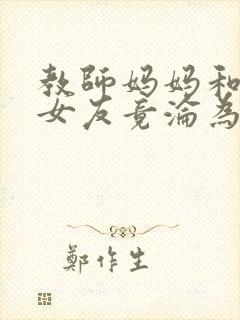 教師媽媽和
女友竟淪為
鄭作生